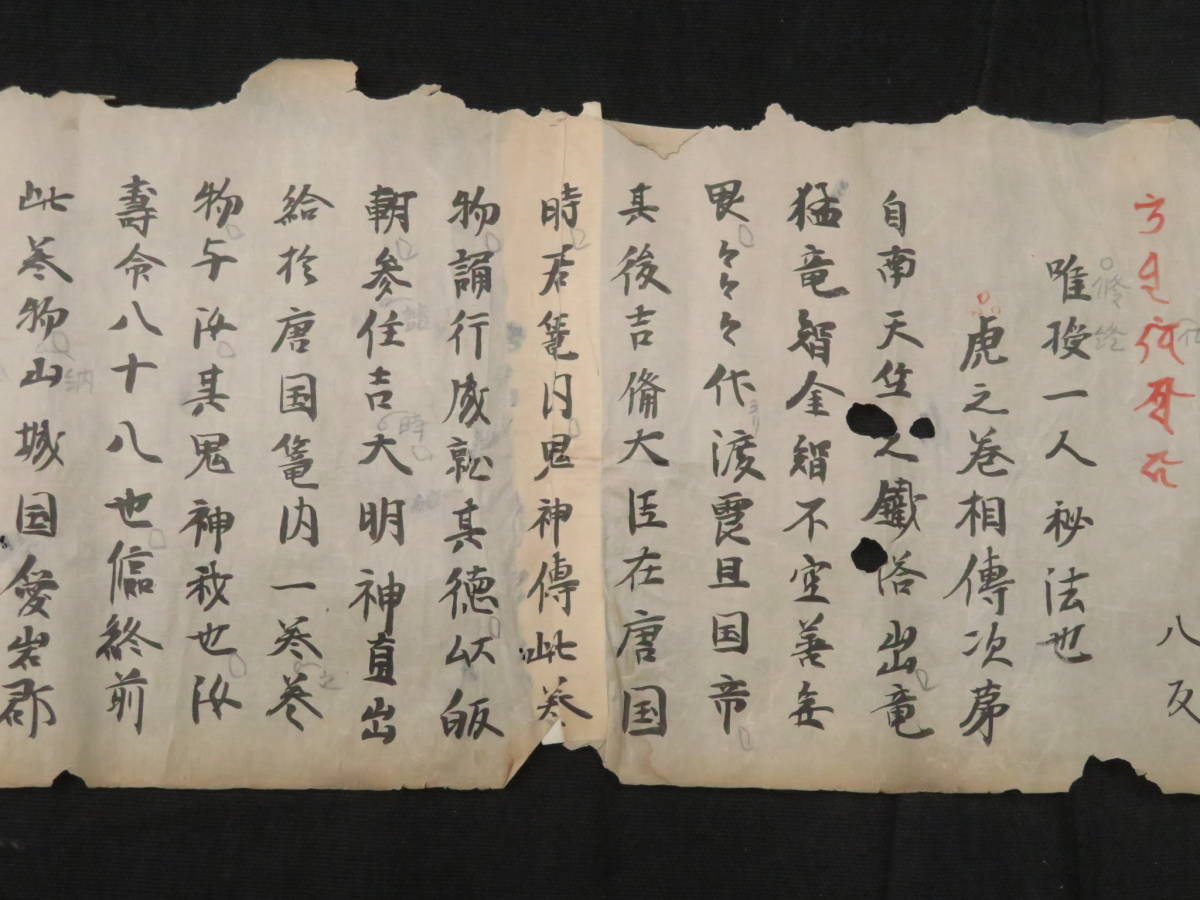 八反
唯授一人秘法也
虎之巻相傳次苐
自南天生之鐵塔出竜
猛竜智金智不空善無
畏々々々代渡震旦国帝
其後吉備大臣在唐国
時君篭内鬼神傳此巻
物誦行成就其徳以皈
朝參住吉大明神直出
給於唐国篭内一巻巻
物与汝其鬼神我也汝
壽令八十八也臨終前
此巻物山城国愛岩郡